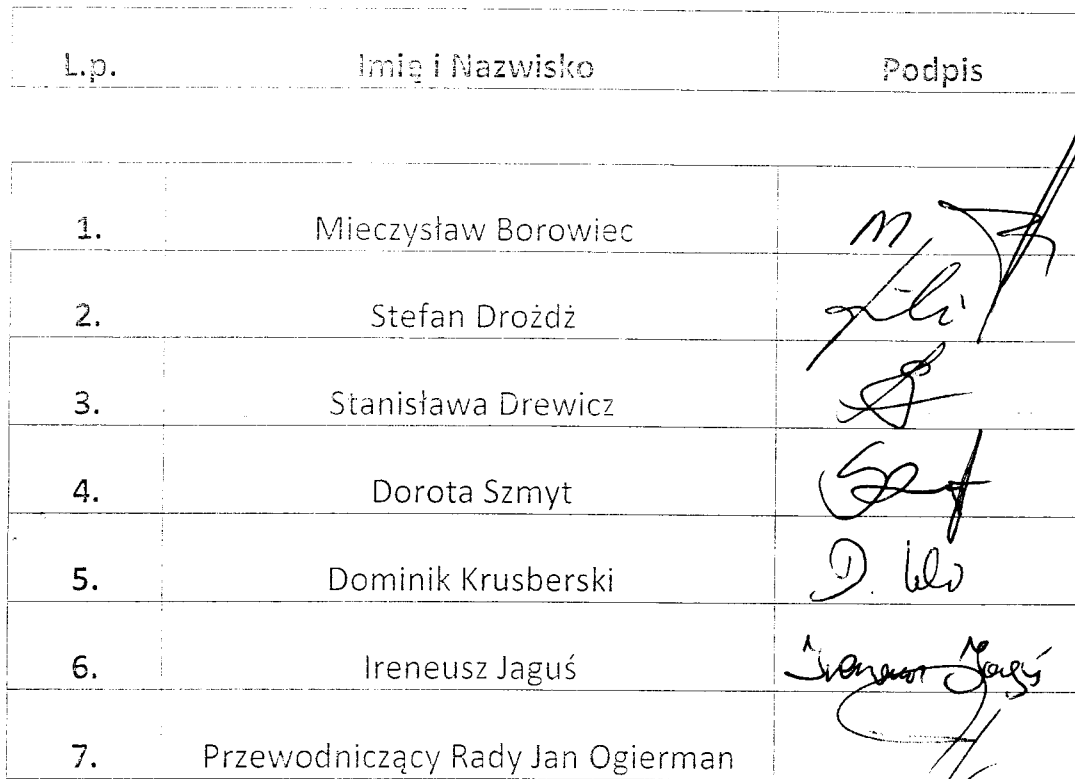 L.p. Imię i Nazwisko Podpis
1. Mieczysław Borowiec
2. Stefan Drożdż
3. Stanisława Drewicz
4. Dorota Szmyt
5. Dominik Krusberski D.
6. Ireneusz Jaguś Ireneusz Jaguś
7. Przewodniczący Rady Jan Ogierman